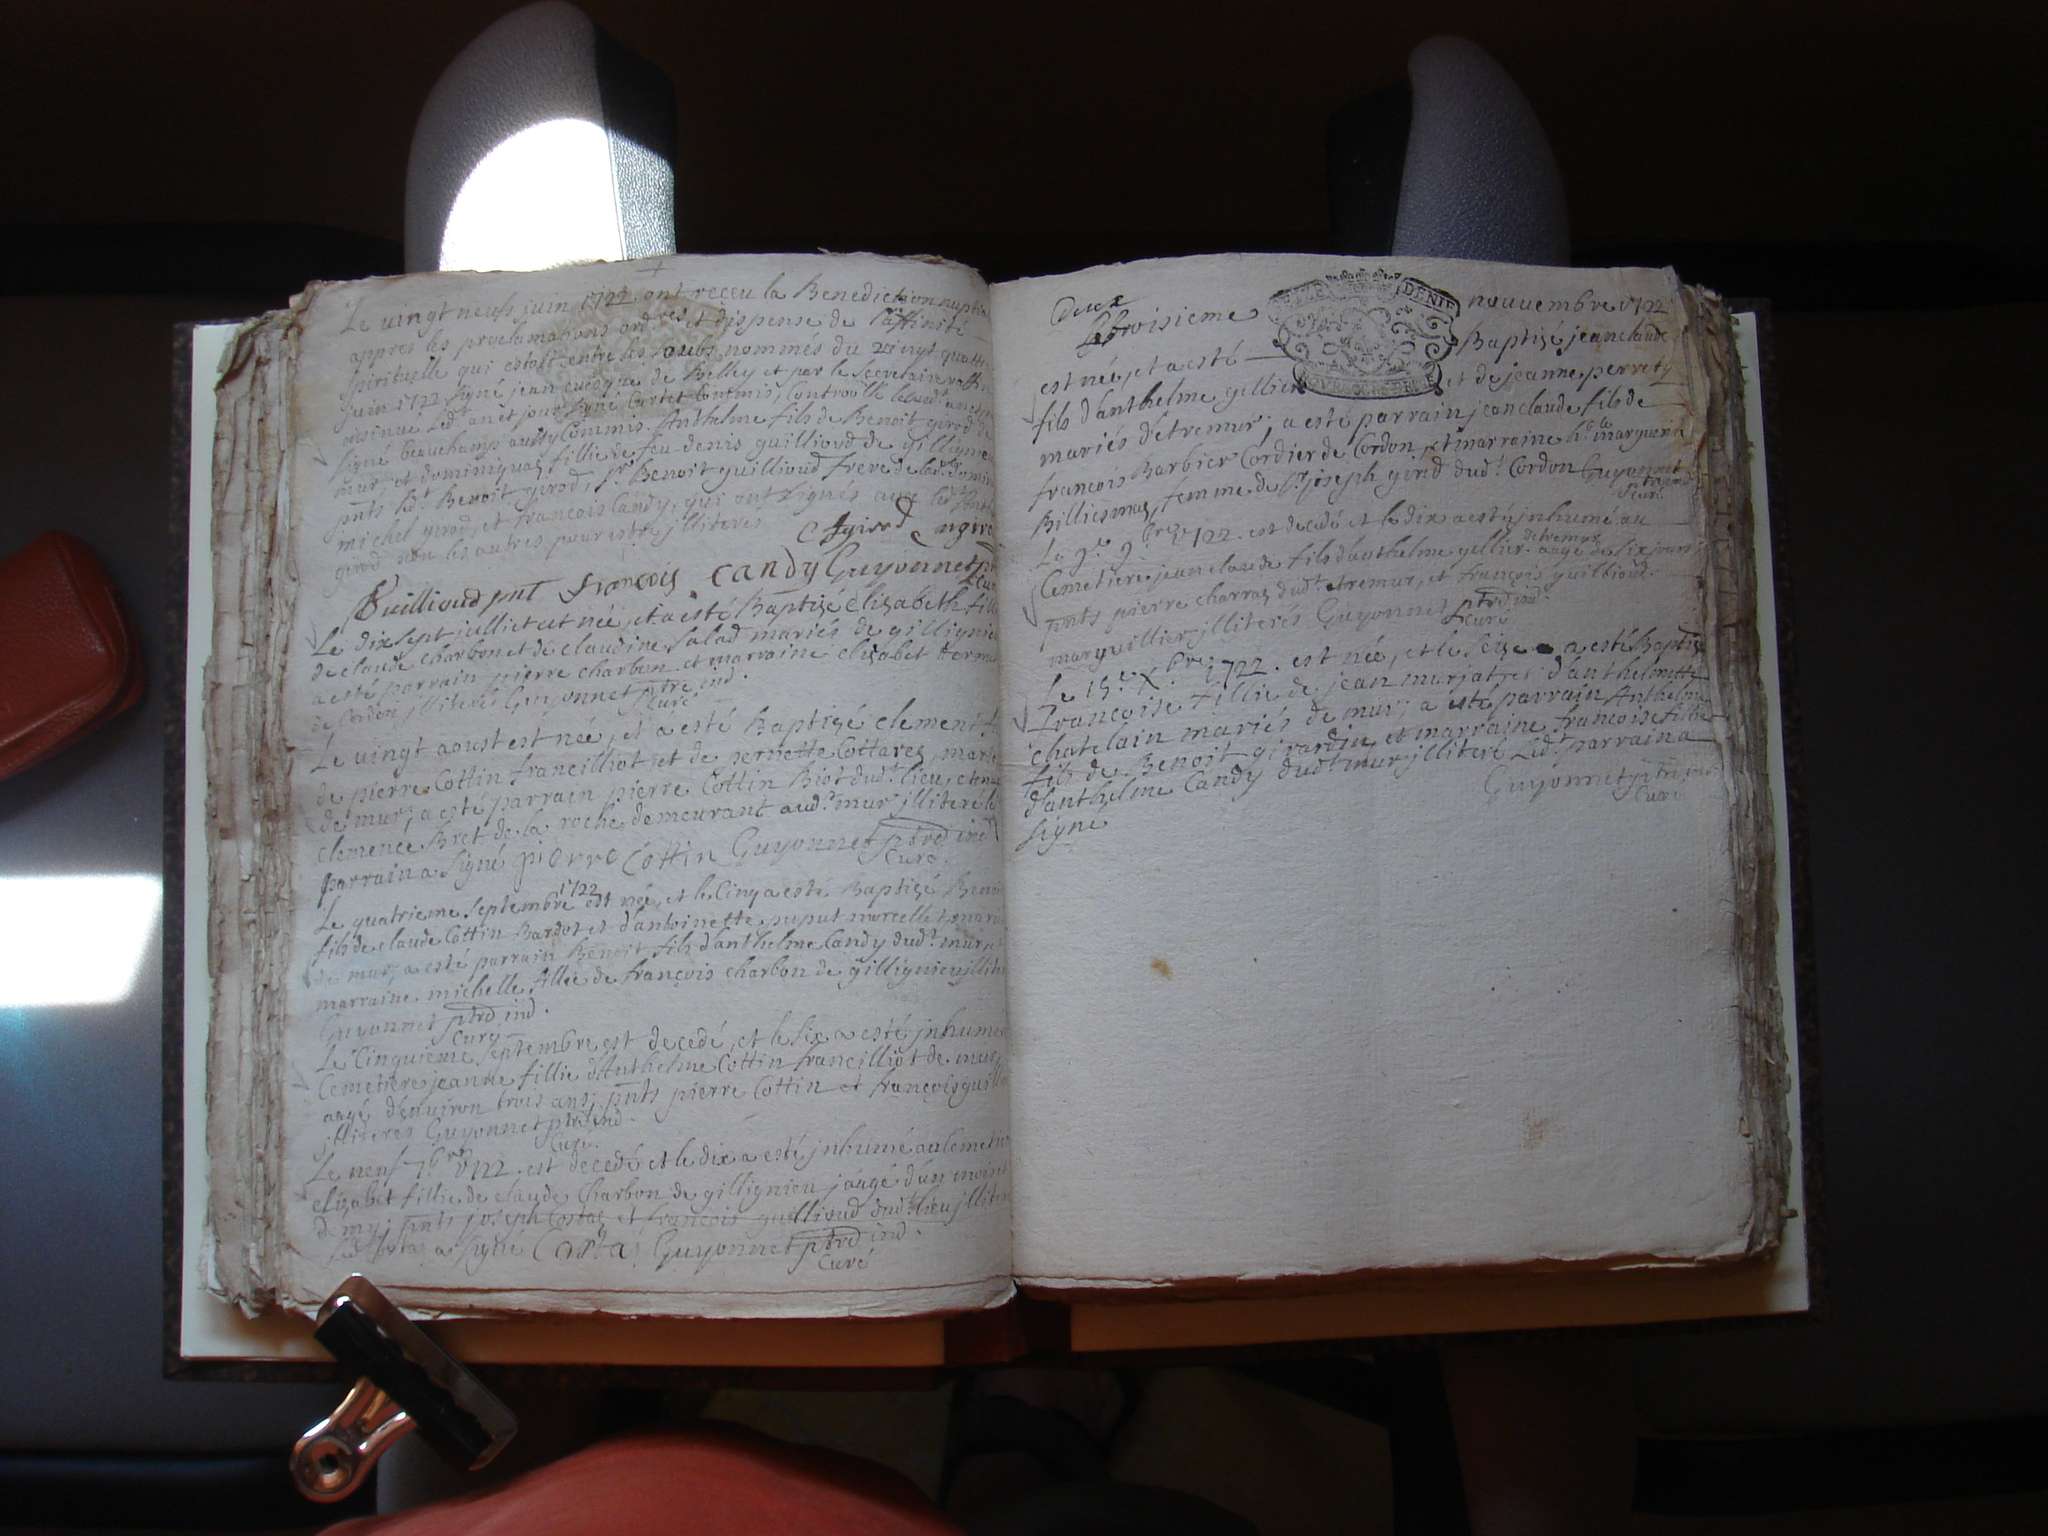 Le vingt neufs juin 1722 ont receu la Benediction nuptia
appres les proclamations ord.res et dispense de l'affinité
spirituelle qui estoit entre les soubs nommés du vingt quatre
juin 1722 signé jean eveque de Belley et par le secretaire
signé Cartet Commis, Controullé
signé beauchamps aussy Commis. Anthelme fils de Benoit girod de
mur, et dominiquaz fillie de feu denis guillioud de gillignieu
pnts led.t Benoit girod, s.r Benoit guillioud frere de lad.te domin
michel girod, et francois Candy, qui ont signés avec led.t
girod non les autres pour estre jlliterés
C A girod m giro
B Guillioud pnt françois candy Guyonnet
Curé
Le dix sept julliet est née, et a esté Baptizé Elizabeth fillie
de claude charbon et de claudine salad mariés de gillignieu
a esté parrain pierre charbon et marraine elizabet
de Cordon jlliterés Guyonnet ptre ind.
Curé
Le vingt aoust est née, et a esté Baptizé clement
de pierre Cottin francilliot et de pernette Cottarez, mariés
de mur; a esté parrain pierre Cottin Biot dud.t lieu, et
clemence Bret de la roche demeurant aud.t mur jlliteré le
parrain a signé pierre Cottin Guyonnet ptre ind
Curé.
Le quatrieme septembre 1722 est née, et le Cinq a esté Baptizé Benoit
fils de claude Cottin Bardot et d'antoinette puput marcellet mariés
de mur; a esté parrain Benoit fils d'anthelme Candy dud.t mur, et
marraine michelle fillie de françois charbon de gillignieu jlliterés
Guyonnet ptre ind.
Curé
Le Cinquieme septembre est decedé, et le six a esté jnhumé
Cemetiere jeanne fillie d'Anthelme Cottin francilliot de mur
aagé d'environ trois ans; pnts pierre Cottin et françois guill
jlliterés Guyonnet ptre ind.
Curé.
Le neuf 7bre 1722 est decedé et le dix a esté jnhumé au Cemetiere
elizabet fillie de claude Charbon de gillignieu jaagé d'un mois et
d'my; pnts joseph Costaz et françois guillioud dud.t lieu jlliteré
led.t Costaz a signé Costaz Guyonnet ptre ind.
Curé
Deux
Le troisieme nouuembre 1722
est née, et a esté Baptizé jean claude
fils d'anthelme gellier et de jeanne perrety
mariés d'etremur; a esté parrain jean claude fils de
francois Barbier Cordier de Cordon, et marraine h.ble marguerite
Billiemaz, femme de s.r joseph girod dud.t Cordon Guyonnet
ptre ind
Curé.
Le 9.e 9.bre 1722. est decedé et le dix a esté jnhumé au
Cemetiere jean claude fils d'anthelme gellier d'etremur aagé de six jours
pnts pierre charraz dud.t etremur, et françois guillioud
marguillier jlliterés Guyonnet ptre ind.
Curé
Le 15.e X.bre 1722. est née, et le seize a esté Baptizé
Françoise fillie de jean murjatres d'anthelmette
chatelain mariés de mur; a esté parrain Anthelme
fils de Benoit girardin, et marraine françoise fillie
d'anthelme Candy dud.t mur jlliteré Led.t parrain a
signe
Guyonnet ptre ind
Curé